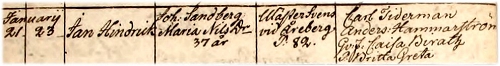 January
21. 23. Jan Hindrick
Joh. Sandberg
Maria Nils Dr
37 år
Mäster Svens
vid Greberg
P. 82.
Carl Tiderman
Anders Hammarström
Caisa
P. Britta Greta